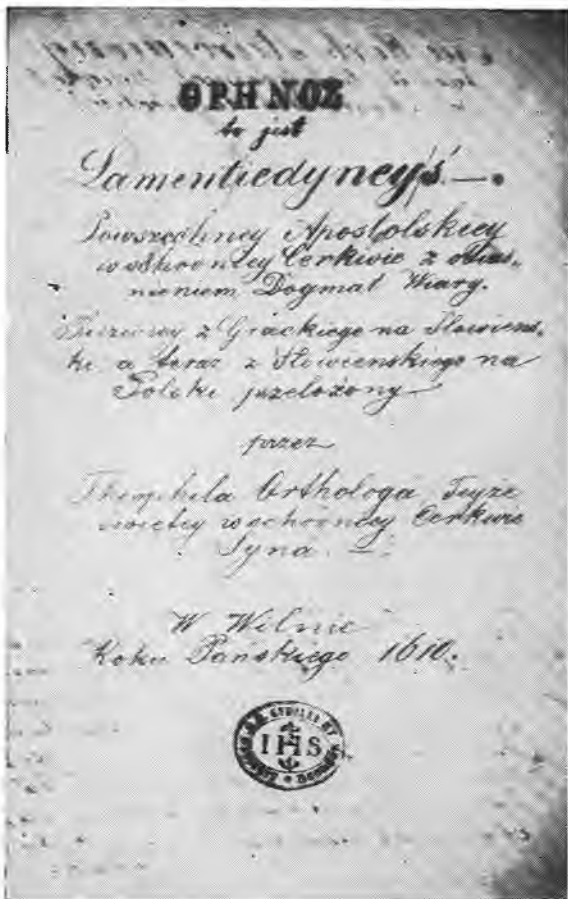 ΘΡΗΝΟΣ
to jest
Lament iedyney ś.—.
Powszechney Apostolskiey
wschodniey Cerkwie z obias,
nieniem Dogmat Wiary.
Pierwey z Graeckiego na Słowiens,
ki a teraz z Słowienskiego na
Polski przełożony
przez
Theophila Orthologa Teyże
swiętey wschodniey Cerkwie
Syna.
W Wilnie
Roku Pańskiego 1610.
IHS